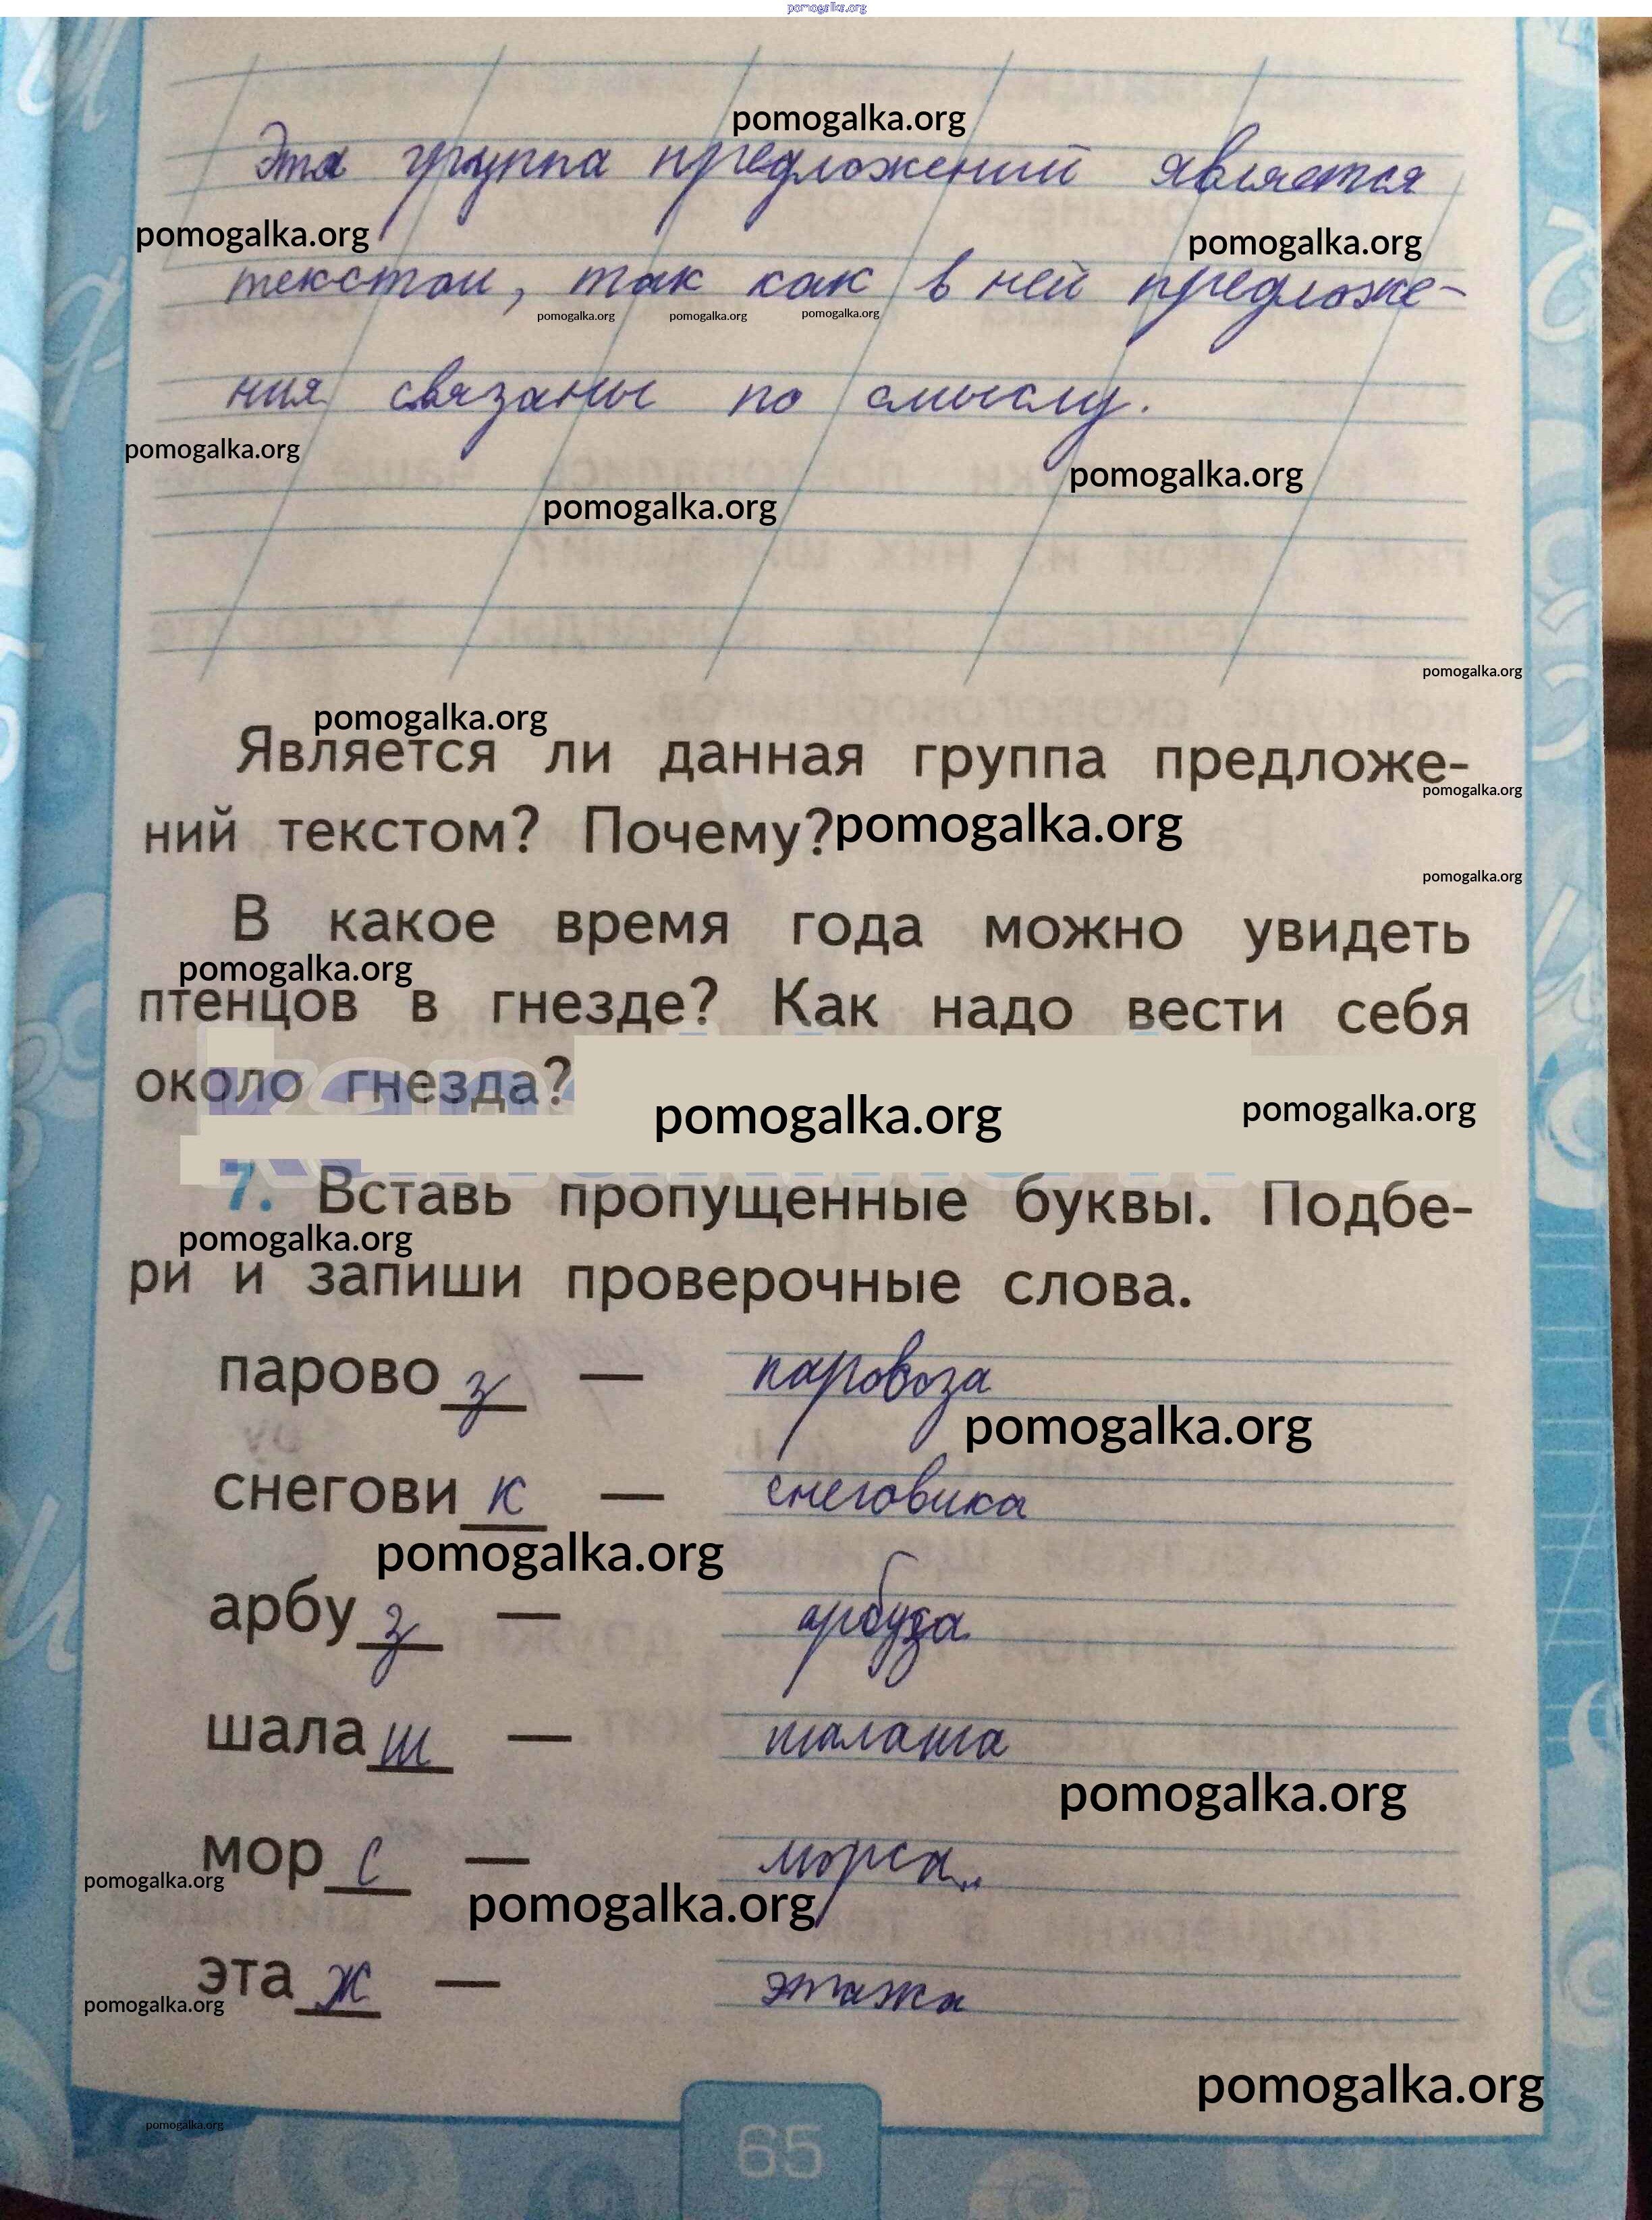 pomogalka.org
pomogalka.org
Эта группа предложений является
pomogalka.org
pomogalka.org
текстом, так как в ней предложе-
pomogalka.org pomogalka.org pomogalka.org
ния связаны по смыслу.
pomogalka.org
pomogalka.org
pomogalka.org
pomogalka.org
pomogalka.org
Является ли данная группа предложе-
pomogalka.org
ний текстом? Почему?
pomogalka.org
pomogalka.org
В какое время года можно увидеть
pomogalka.org
птенцов в гнезде? Как надо вести себя
около гнезда?
pomogalka.org
pomogalka.org
7. Вставь пропущенные буквы. Подбе-
pomogalka.org
ри и запиши проверочные слова.
паровоз — паровоза
pomogalka.org
снеговик — снеговика
pomogalka.org
арбуз — арбуза
шалаш — шалаша
pomogalka.org
морс — морса
pomogalka.org
pomogalka.org
этаж — этажа
pomogalka.org
pomogalka.org
pomogalka.org
65